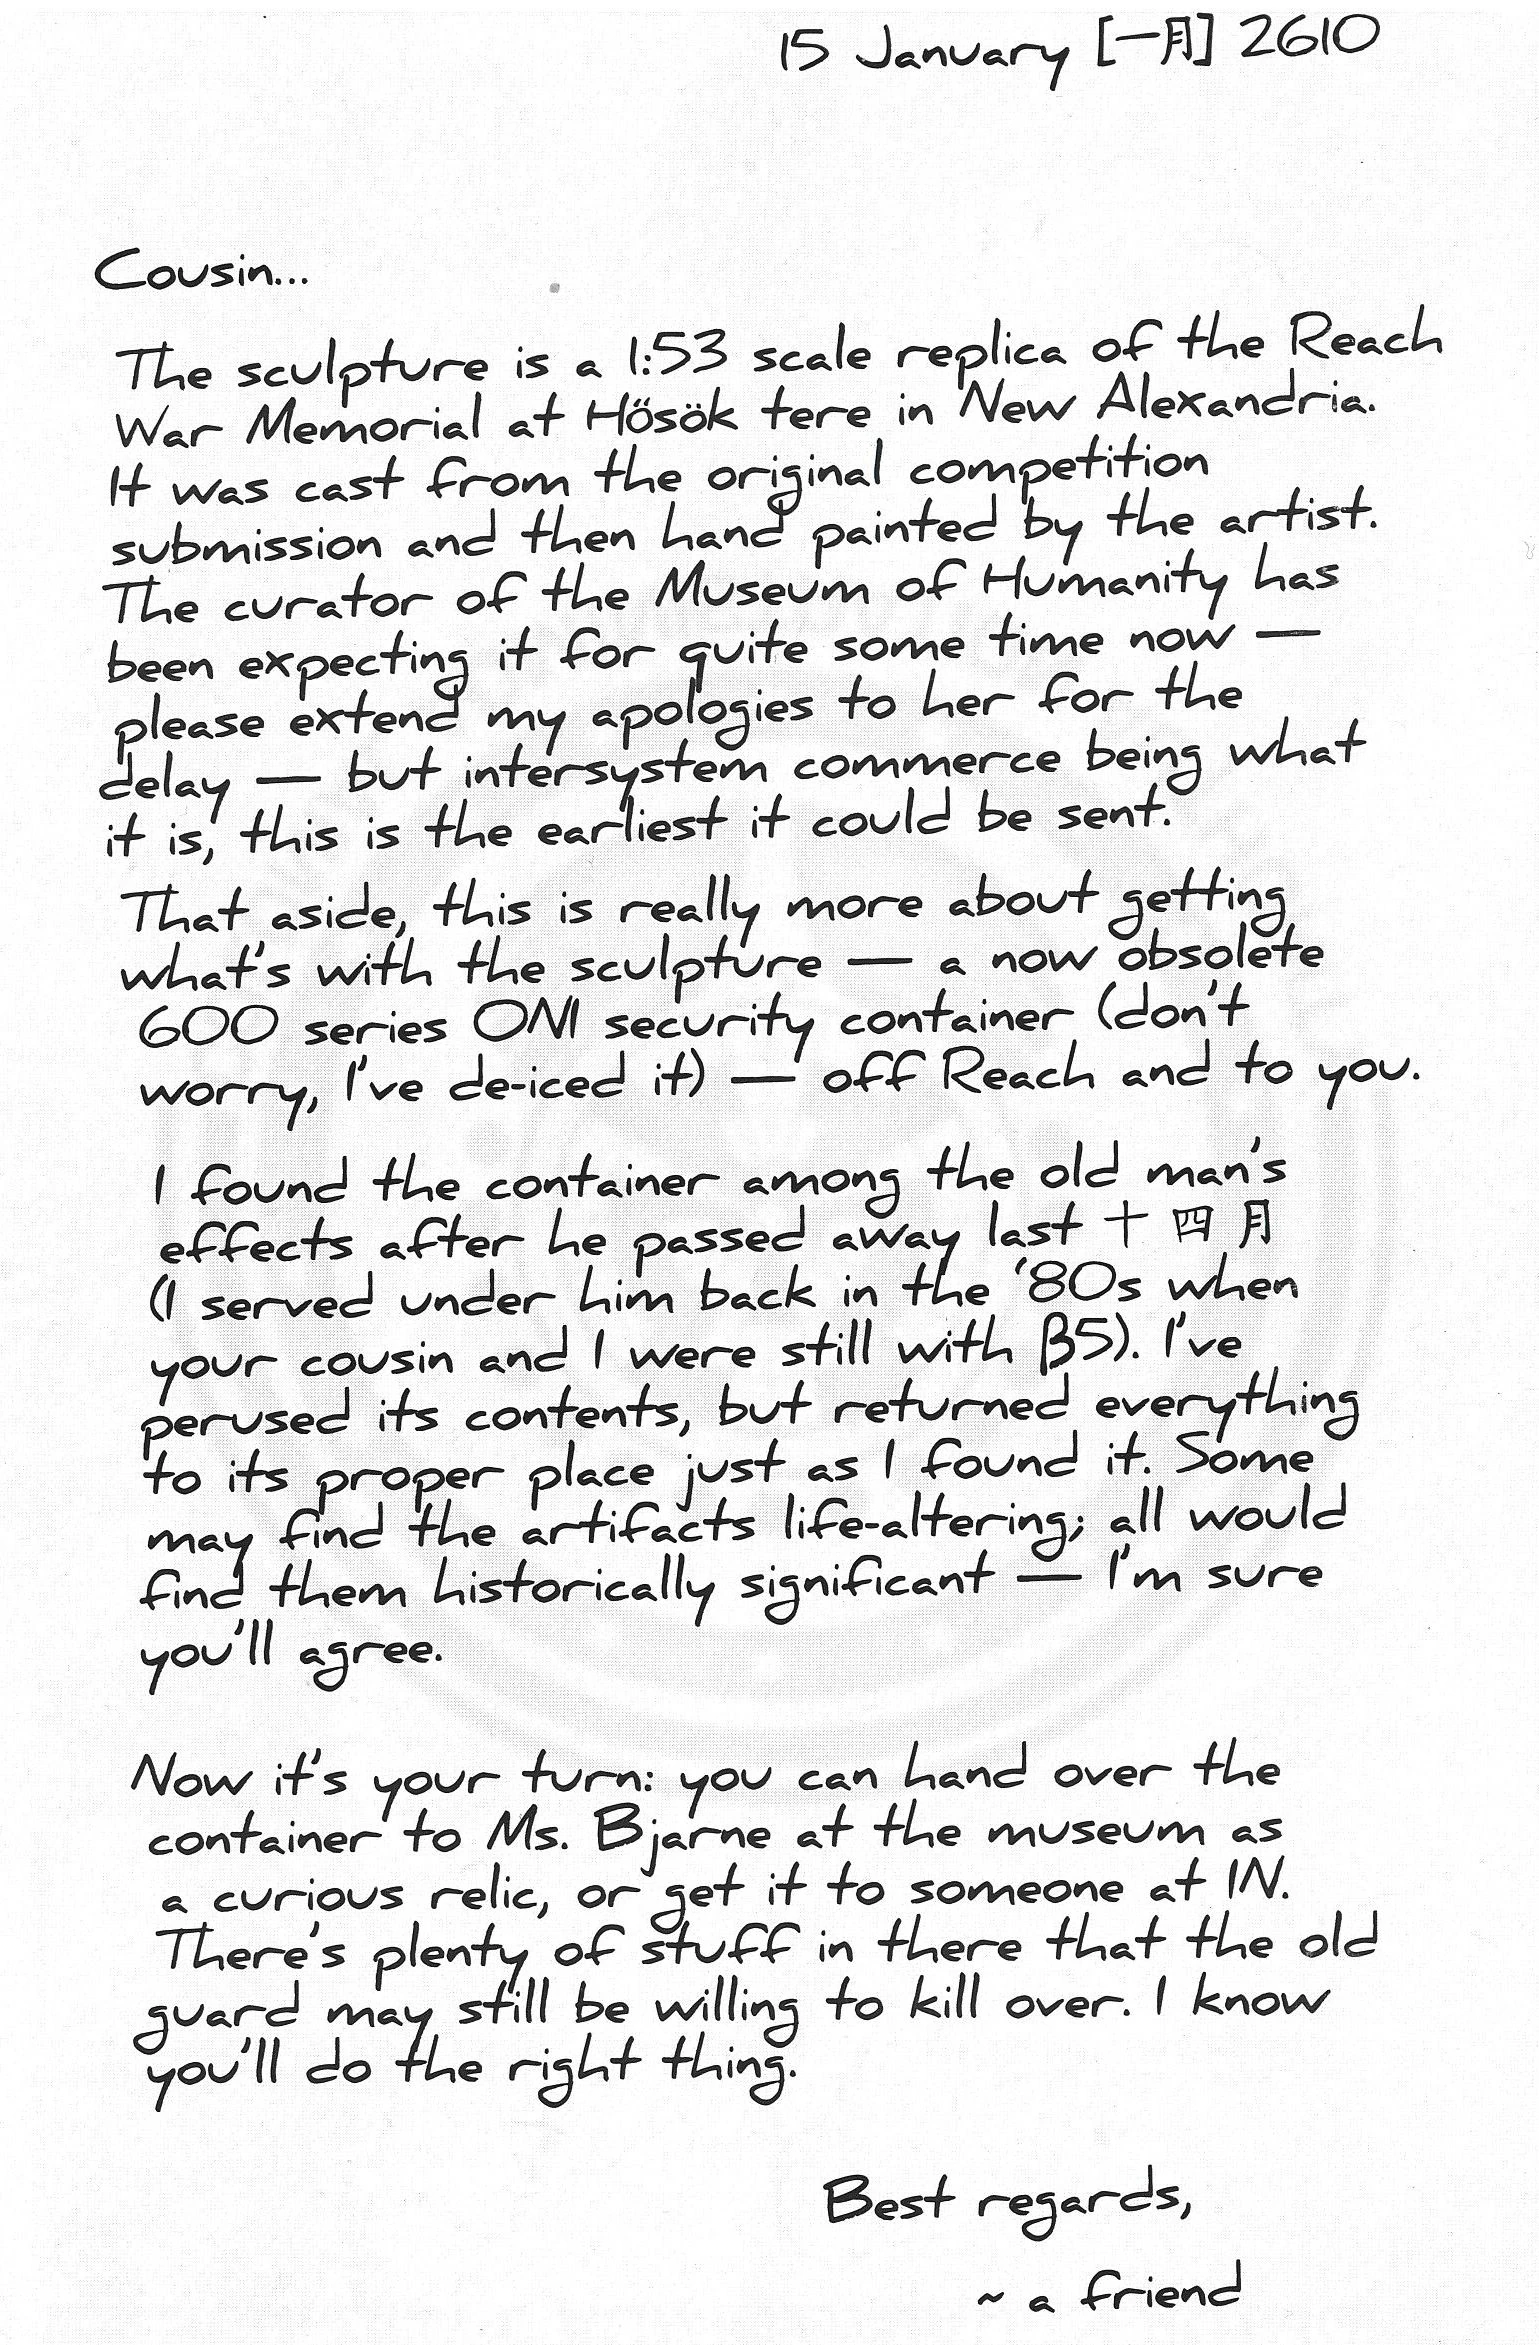 15 January [一月] 2610
Cousin...
The sculpture is a 1:53 scale replica of the Reach
War Memorial at Hősök tere in New Alexandria.
It was cast from the original competition
submission and then hand painted by the artist.
The curator of the Museum of Humanity has
been expecting it for quite some time now —
please extend my apologies to her for the
delay — but intersystem commerce being what
it is, this is the earliest it could be sent.
That aside, this is really more about getting
what's with the sculpture — a now obsolete
600 series ONI security container (don't
worry, I've de-iced it) — off Reach and to you.
I found the container among the old man's
effects after he passed away last 十四月
(I served under him back in the '80s when
your cousin and I were still with β5). I've
perused its contents, but returned everything
to its proper place just as I found it. Some
may find the artifacts life-altering; all would
find them historically significant — I'm sure
you'll agree.
Now it's your turn: you can hand over the
container to Ms. Bjarne at the museum as
a curious relic, or get it to someone at IN.
There's plenty of stuff in there that the old
guard may still be willing to kill over. I know
you'll do the right thing.
Best regards,
~ a friend